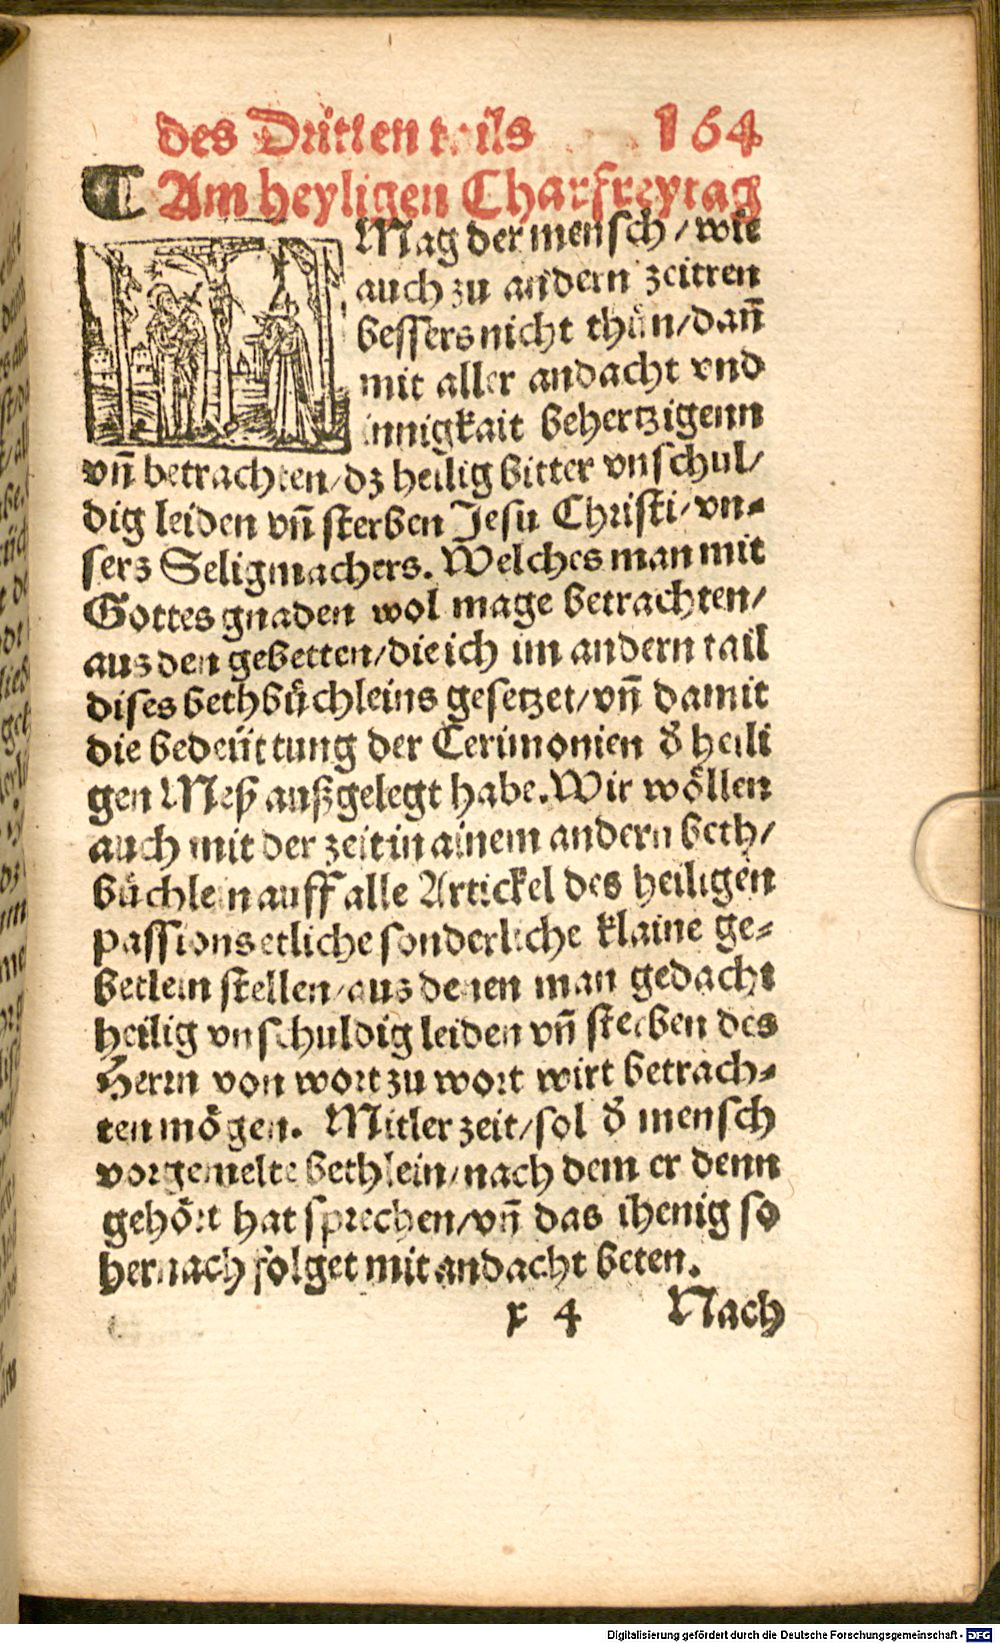 des Dritten tails 164
¶ Am heyligen Charfreytag
Mag der mensch / wie
auch zu andern zeitten
bessers nicht thůn / dañ
mit aller andacht vnd
innigkait behertzigenn
vñ betrachten / dz heilig bitter vnschul/
dig leiden vñ sterben Jesu Christi / vn⸗
sers Seligmachers. Welches man mit
Gottes gnaden wol mage betrachten /
aus den gebetten / die ich im andern tail
dises bethbüchleins gesetzet / vñ damit
die bedeüttung der Cerimonien d̕ heili
gen Meß außgelegt habe. Wir wöllen
auch mit der zeit in ainem andern beth/
büchlein auff alle Artickel des heiligen
passions etliche sonderliche klaine ge⸗
betlein stellen / aus denen man gedacht
heilig vnschuldig leiden vñ sterben des
Herrn von wort zu wort wirt betrach⸗
ten mögen. Mitler zeit / sol d̕ mensch
vorgemelte bethlein / nach dem er denn
gehört hat sprechen / vñ das ihenig so
hernach folget mit andacht beten.
x 4 Nach
Digitalisierung gefördert durch die Deutsche Forschungsgemeinschaft - DFG